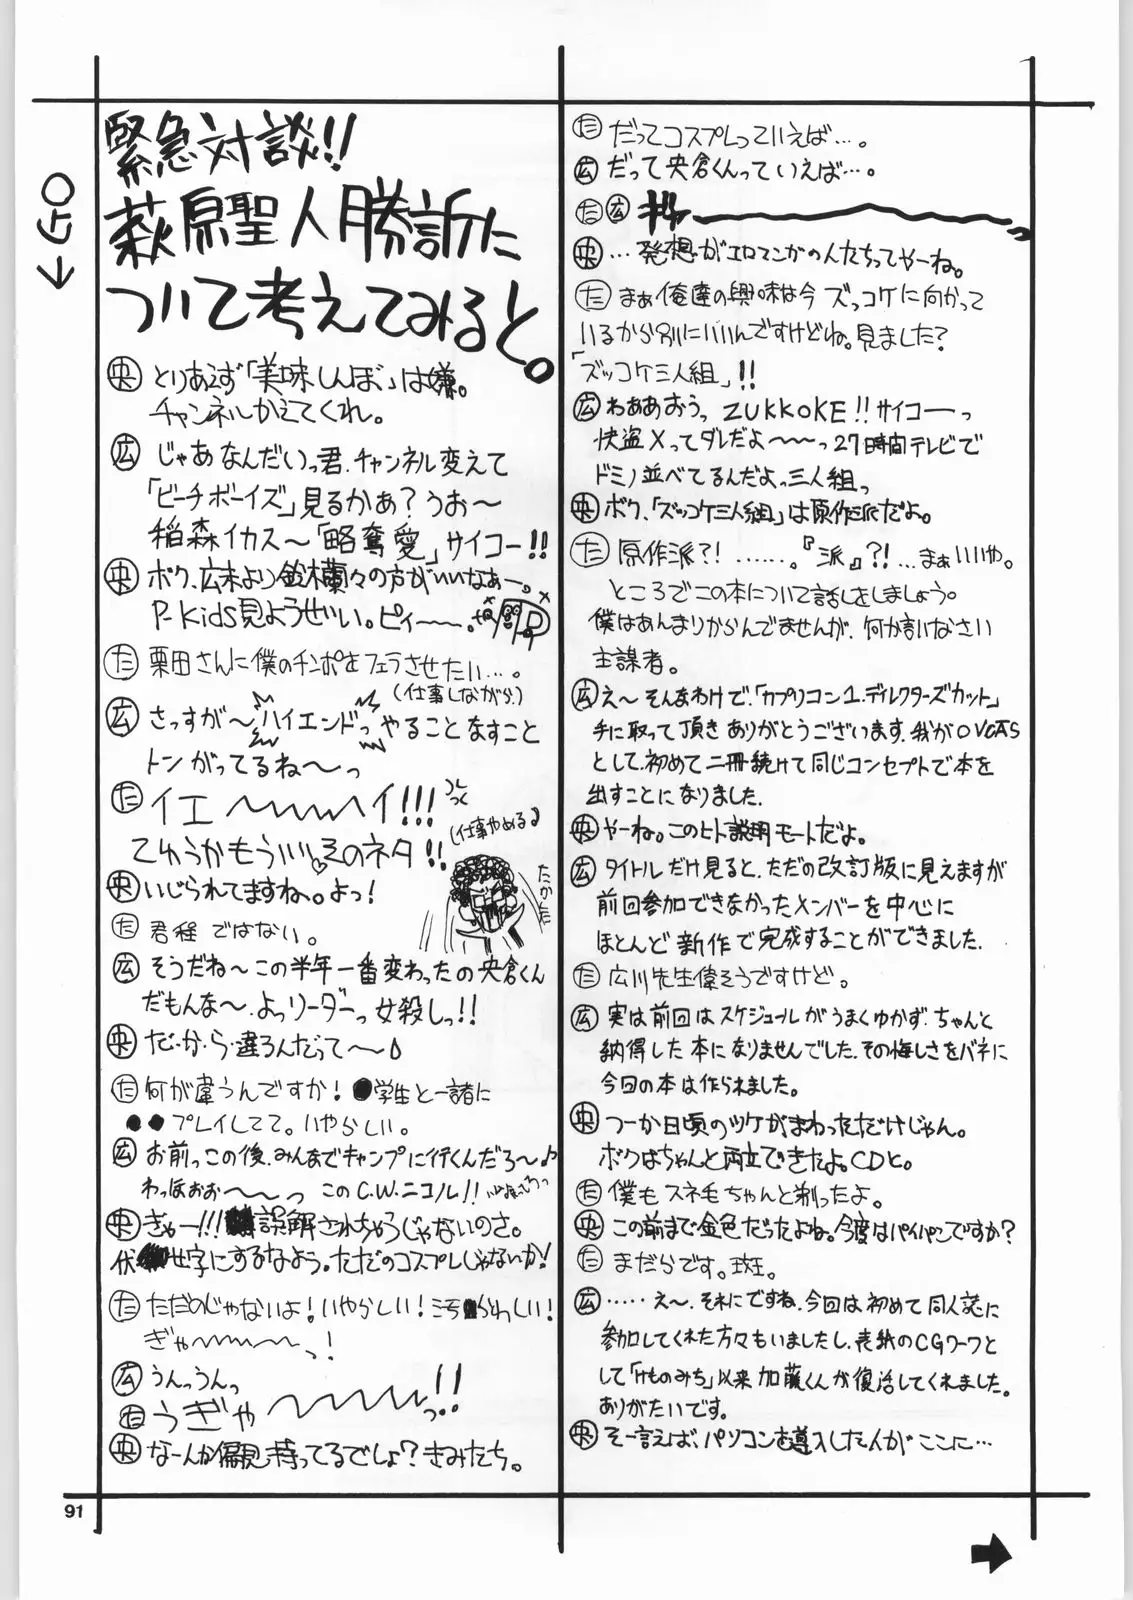 緊急対談!!
萩原聖人勝訴に
ついて考えてみると。
←GO
央 とりあえず「美味しんぼ」は嫌。
チャンネルかえてくれ。
広 じゃあなんだいっ君、チャンネル変えて
「ビーチボーイズ」見るかぁ?うお〜
稲森イカス〜「略奪愛」サイコー!!
央 ボク、広末より鈴木蘭々の方がいいなぁー。
P-Kids見ようぜいい。ピィ〜〜。
た 栗田さんに僕のチンポをフェラさせたい…。
(仕事しながら)
広 さっすが〜ハイエンドっやることなすこと
トンがってるね〜っ
た イエ〜〜〜イ!!!
(仕事やめる♪
てゆうかもういい、そのネタ!!
央 いじられてますね。よっ!
た 君程ではない。
広 そうだね〜この半年一番変わったの央倉くん
だもんな〜、よっリーダーっ女殺しっ!!
央 だ・か・ら・違うんだって〜♪
た 何が違うんですか!●学生と一諸に
●●プレイしてて。いやらしい。
広 お前っこの後、みんなでキャンプに行くんだろ〜♪
わっほおぉ〜〜っ このC.W.ニコル!!
央 ぎゃー!!!誤解されちゃうじゃないのさ。
伏せ字にするなよう。ただのコスプレじゃないか!
た ただのじゃないよ!いやらしい!
ぎゃ〜〜〜っ!
広 うんっうんっ
た うぎゃ〜〜〜っ!!
央 なーんか偏見持ってるでしょ?きみたち。
た だってコスプレっていえば…。
広 だって央倉くんっていえば…。
た 広
央 …発想がエロマンガの人たちってやーね。
た まぁ俺達の興味は今ズッコケに向かって
いるから別にいいんですけどね。見ました?
「ズッコケ三人組」!!
広 わああおうっ ZUKKOKE!!サイコーっ
快盗Xってダレだよ〜〜っ27時間テレビで
ドミノ並べてるんだよっ三人組っ
央 ボク、「ズッコケ三人組」は原作派だよ。
た 原作派?!……。『派』?!…まぁいいや。
ところでこの本について話しをしましょう。
僕はあんまりからんでませんが、何か言いなさい
主謀者。
広 え〜そんなわけで、「カプリコン1.ディレクターズカット」
手に取って頂きありがとうございます。我がOVCA'S
として、初めて二冊続けて同じコンセプトで本を
出すことになりました。
央 やーね。このヒト説明モードだよ。
広 タイトルだけ見ると、ただの改訂版に見えますが
前回参加できなかったメンバーを中心に
ほとんど新作で完成することができました。
た 広川先生偉そうですけど。
広 実は前回はスケジュールがうまくゆかず、ちゃんと
納得した本になりませんでした。その悔しさをバネに
今回の本は作られました。
央 つーか日頃のツケがまわっただけじゃん。
ボクはちゃんと両立できたよ。CDと。
た 僕もスネ毛ちゃんと剃ったよ。
央 この前まで金色だったよね。今度はパイパンですか?
た まだらです。斑。
広 ……え〜、それにですね、今回は初めて同人誌に
参加してくれた方々もいましたし、表紙のCGワークと
して「けものみち」以来加藤くんが復活してくれました。
ありがたいです。
央 そー言えば、パソコンを導入した人がここに…
91